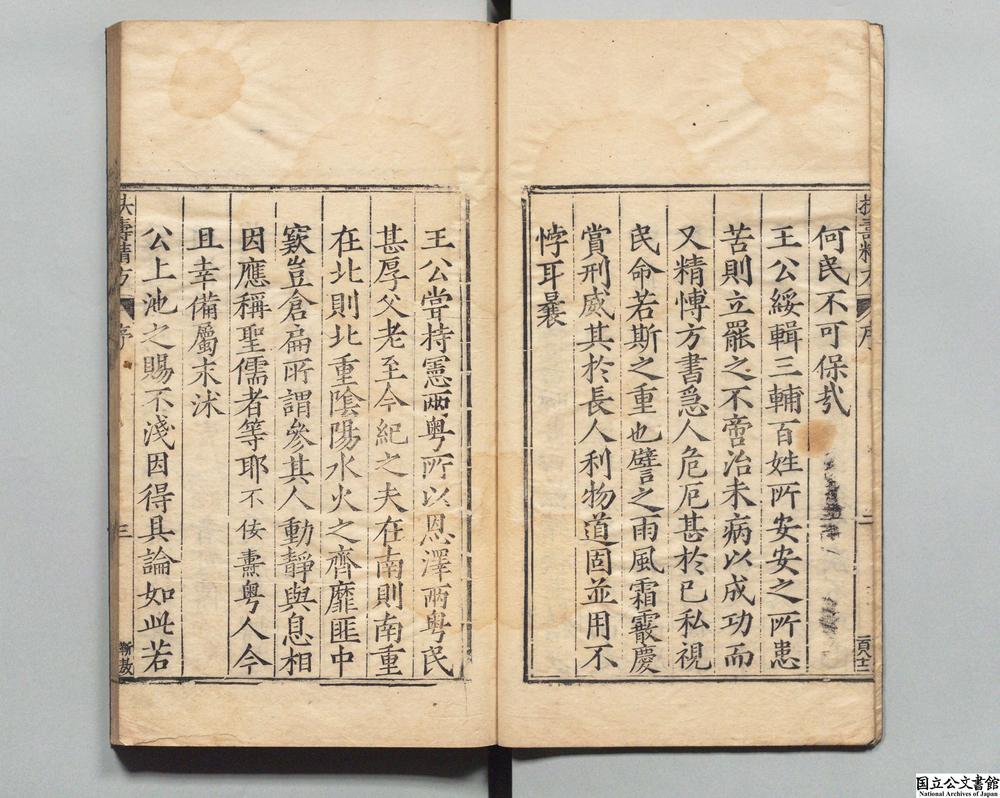 何民不可保哉
王公綏輯三輔百姓所安安之所患
苦則立罷之不啻治未病以成功而
又精博方書急人危厄甚於已私視
民命若斯之重也譬之雨風霜霰慶
賞刑威其於長人利物道固並用不
悖耳曩
王公嘗持憲兩粵所以恩澤兩粵民
甚厚父老至今紀之夫在南則南重
在北則北重陰陽水火之齊靡匪中
窾豈倉扁所謂參其人動靜與息相
因應稱聖儒者等耶不佞燾粵人今
且幸備屬末沭
公上池之賜不淺因得具論如此若
扶壽精方 序 三
国立公文書館
National Archives of Japan